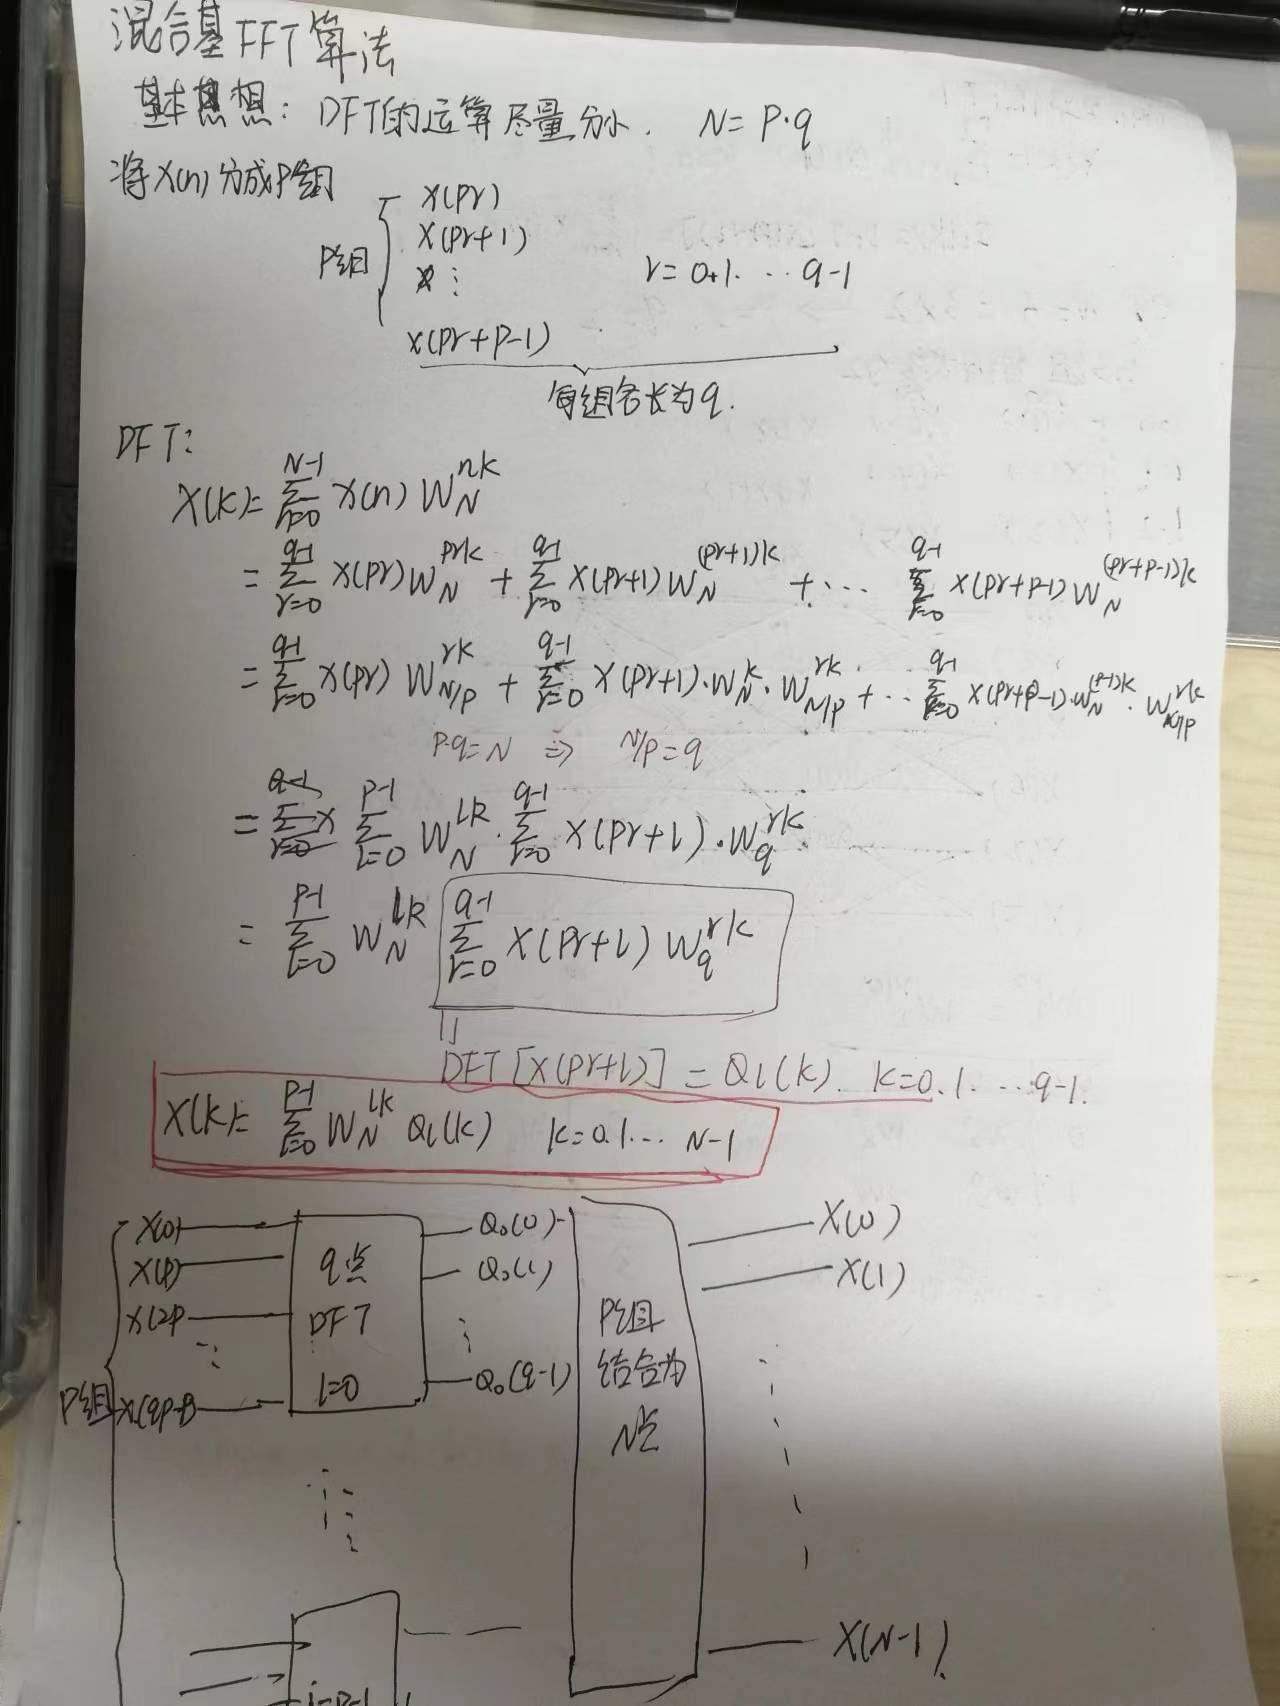 混合基FFT算法
基本思想: DFT的运算尽量分小. N=P·q
将x(n)分成P组
x(Pr)
x(Pr+1)
P组 ⋮ r=0,1...q-1
x(Pr+P-1)
每组各长为q.
DFT:
X(k)= Σ_{n=0}^{N-1} x(n) W_N^{nk}
= Σ_{r=0}^{q-1} x(Pr) W_N^{Prk} + Σ_{r=0}^{q-1} x(Pr+1) W_N^{(Pr+1)k} + ... Σ_{r=0}^{q-1} x(Pr+P-1) W_N^{(Pr+P-1)k}
= Σ_{r=0}^{q-1} x(Pr) W_{N/P}^{rk} + Σ_{r=0}^{q-1} x(Pr+1)·W_N^{k}·W_{N/P}^{rk} + ... Σ_{r=0}^{q-1} x(Pr+P-1)·W_N^{(P-1)k}·W_{N/P}^{rk}
P·q=N ⇒ N/P=q
= Σ_{l=0}^{P-1} W_N^{lk}·Σ_{r=0}^{q-1} x(Pr+l)·W_q^{rk}
= Σ_{l=0}^{P-1} W_N^{lk} Σ_{r=0}^{q-1} x(Pr+l) W_q^{rk}
DFT[x(Pr+l)] = Q_l(k). k=0.1...q-1.
X(k)= Σ_{l=0}^{P-1} W_N^{lk} Q_l(k) k=0.1... N-1
x(0) Q_0(0) X(0)
x(P) q点 Q_0(1) X(1)
x(2P DFT ⋮ P组
⋮ 结合为
P组 l=0 Q_0(q-1) N点
l=P-1 X(N-1)